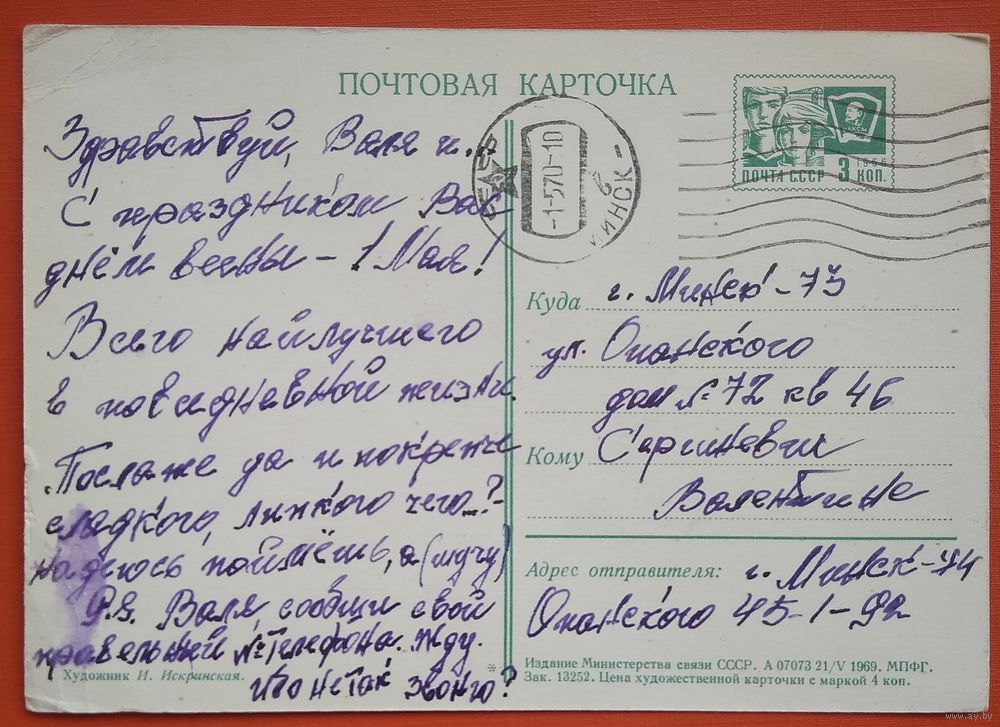 ПОЧТОВАЯ КАРТОЧКА
Здравствуй, Валя и...
С праздником Вас
днём весны - 1 Мая!
Всего наилучшего
в повседневной жизни.
да и покрепче
сладкого, липкого чего...?-
надеюсь поймёшь, а (шучу)
P.S. Валя, сообщи свой
правельный № телефона. Жду.
не так звоню?
Художник И. Искринская.
СССР
-1-570-10
в
МИНСК -
ВЛКСМ
1966
ПОЧТА СССР 3 КОП.
Куда г. Минск-73
ул. Опанского
дом № 72 кв 46
Кому Сергиневич
Валентине
Адрес отправителя: г. Минск-74
Опанского 45-1-92
*
Издание Министерства связи СССР. А 07073 21/V 1969. МПФГ.
Зак. 13252. Цена художественной карточки с маркой 4 коп.
www.ay.by